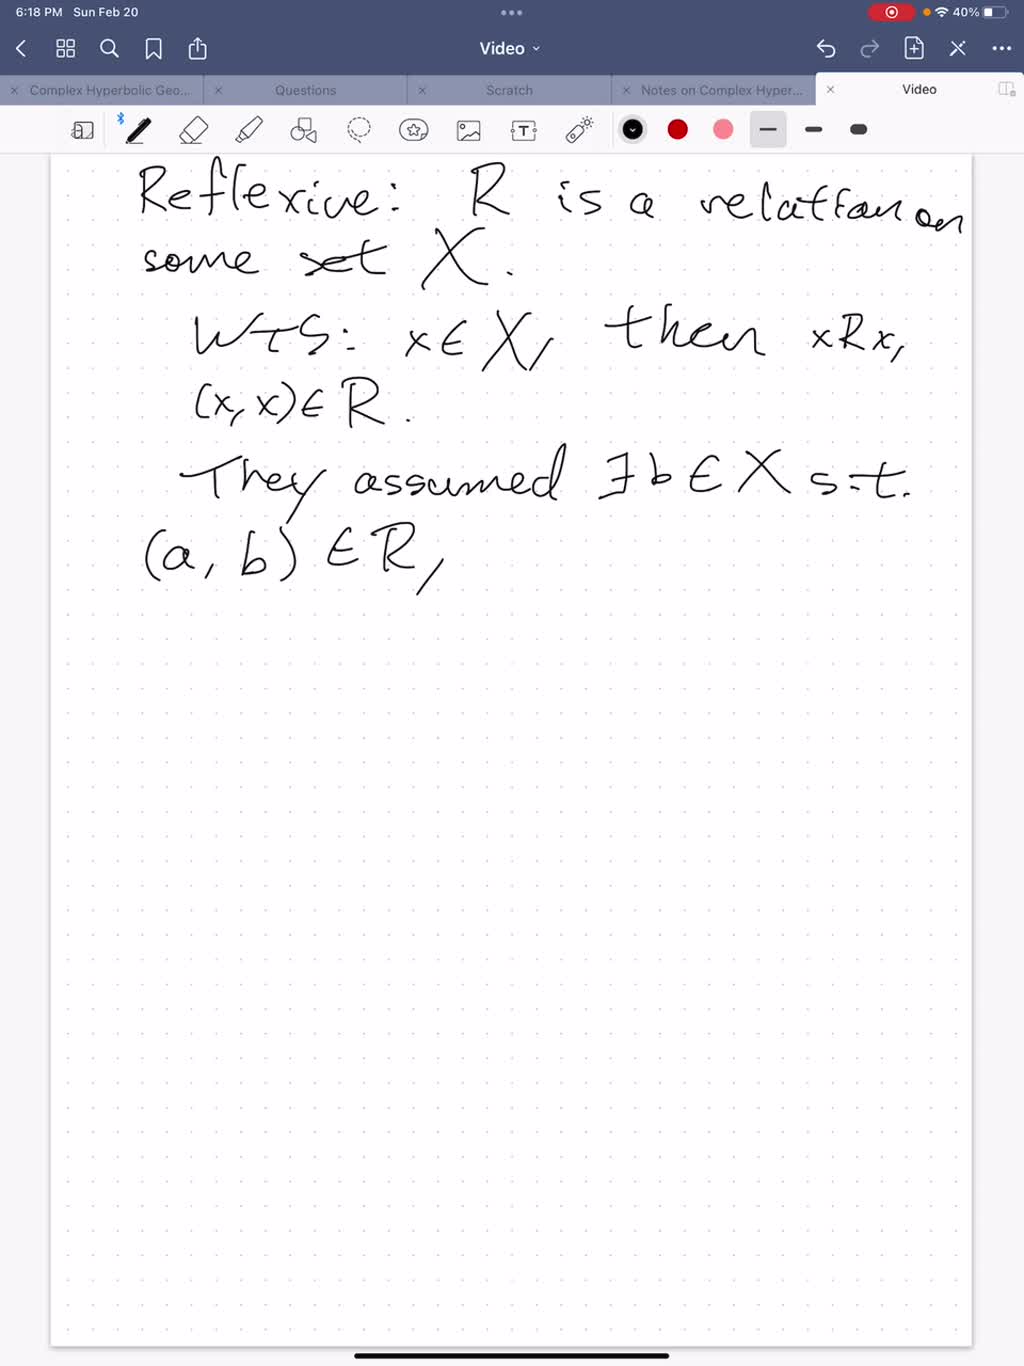 6:18 PM Sun Feb 20
40%
Video
Complex Hyperbolic Geo...
Questions
Scratch
Notes on Complex Hyper...
Video
T
Reflexive: R is a relation on
some set X.
WTS: x ∈ X, then xRx,
(x, x) ∈ R.
They assumed ∃ b ∈ X s.t.
(a, b) ∈ R,